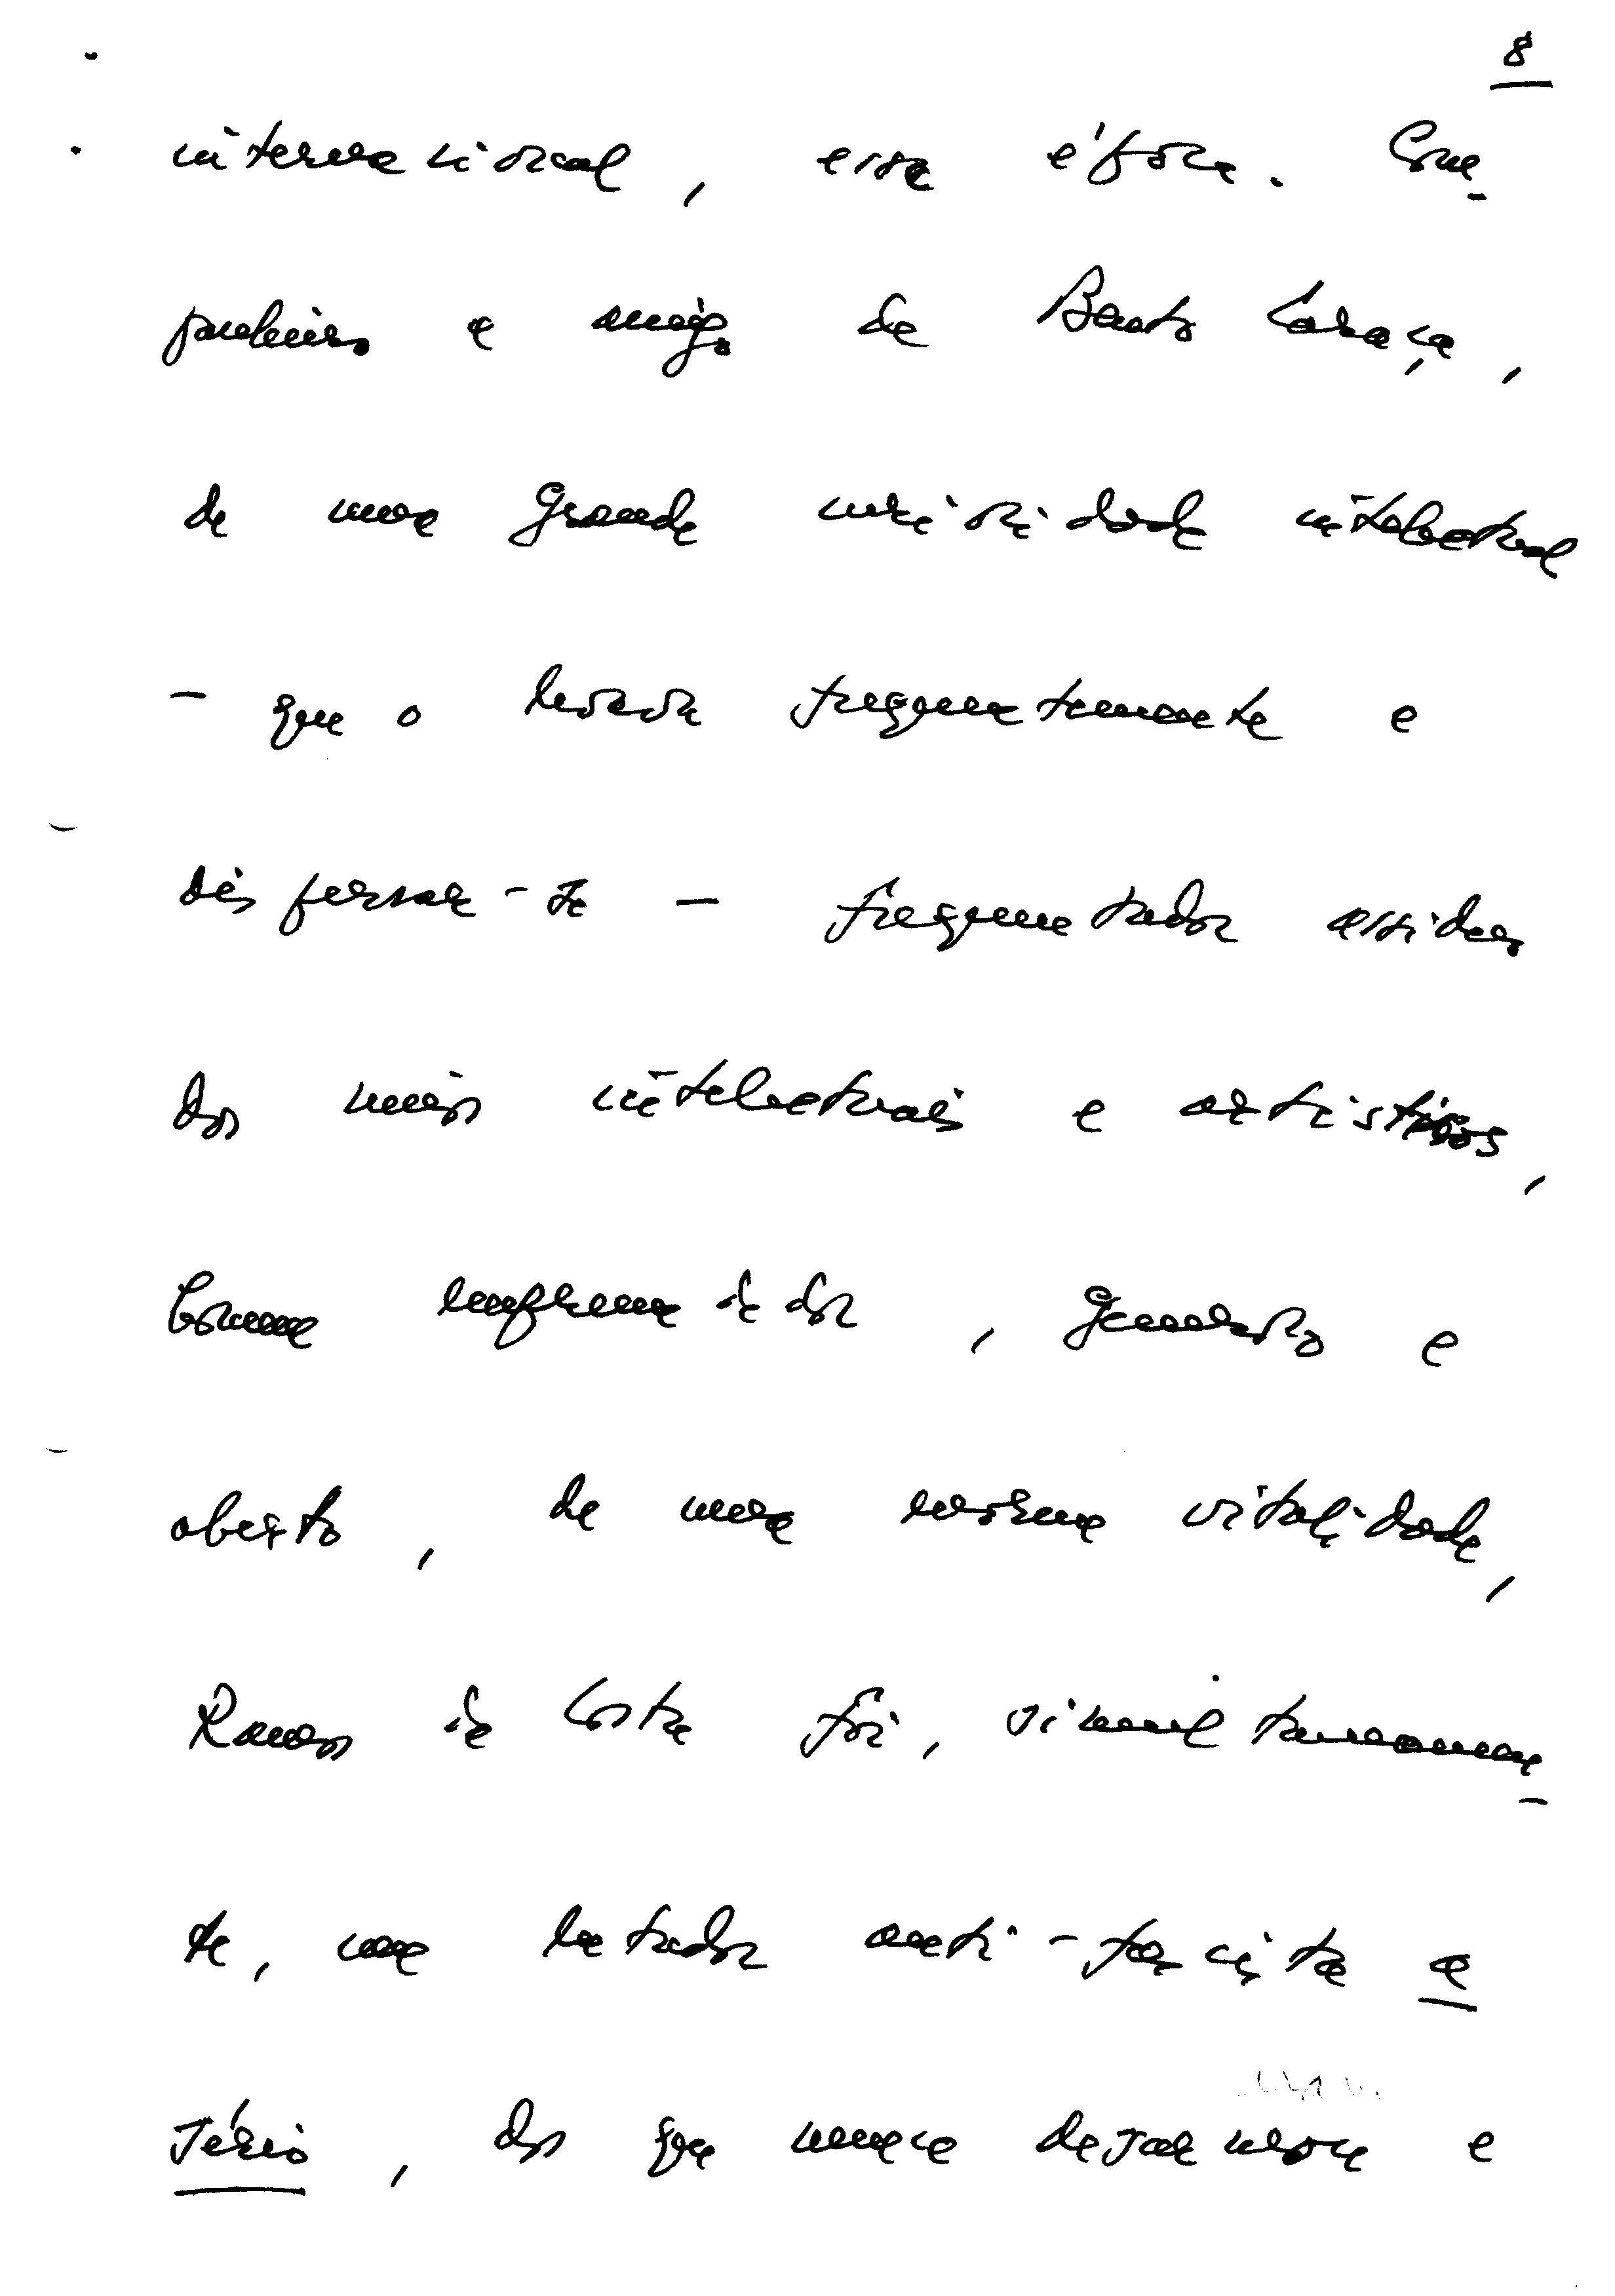 8
internacional, essa época. Com-
panheiro e amigo de Bento Caraça,
de uma grande curiosidade intelectual
- que o levava frequentemente a
dispersar-se - frequentador assíduo
dos meios intelectuais e artísticos,
homem empreendedor, generoso e
aberto, de uma enorme vitalidade,
Ramos da Costa foi, simultaneamen-
te, um lutador anti-fascista a
sério, dos que nunca desarmou e